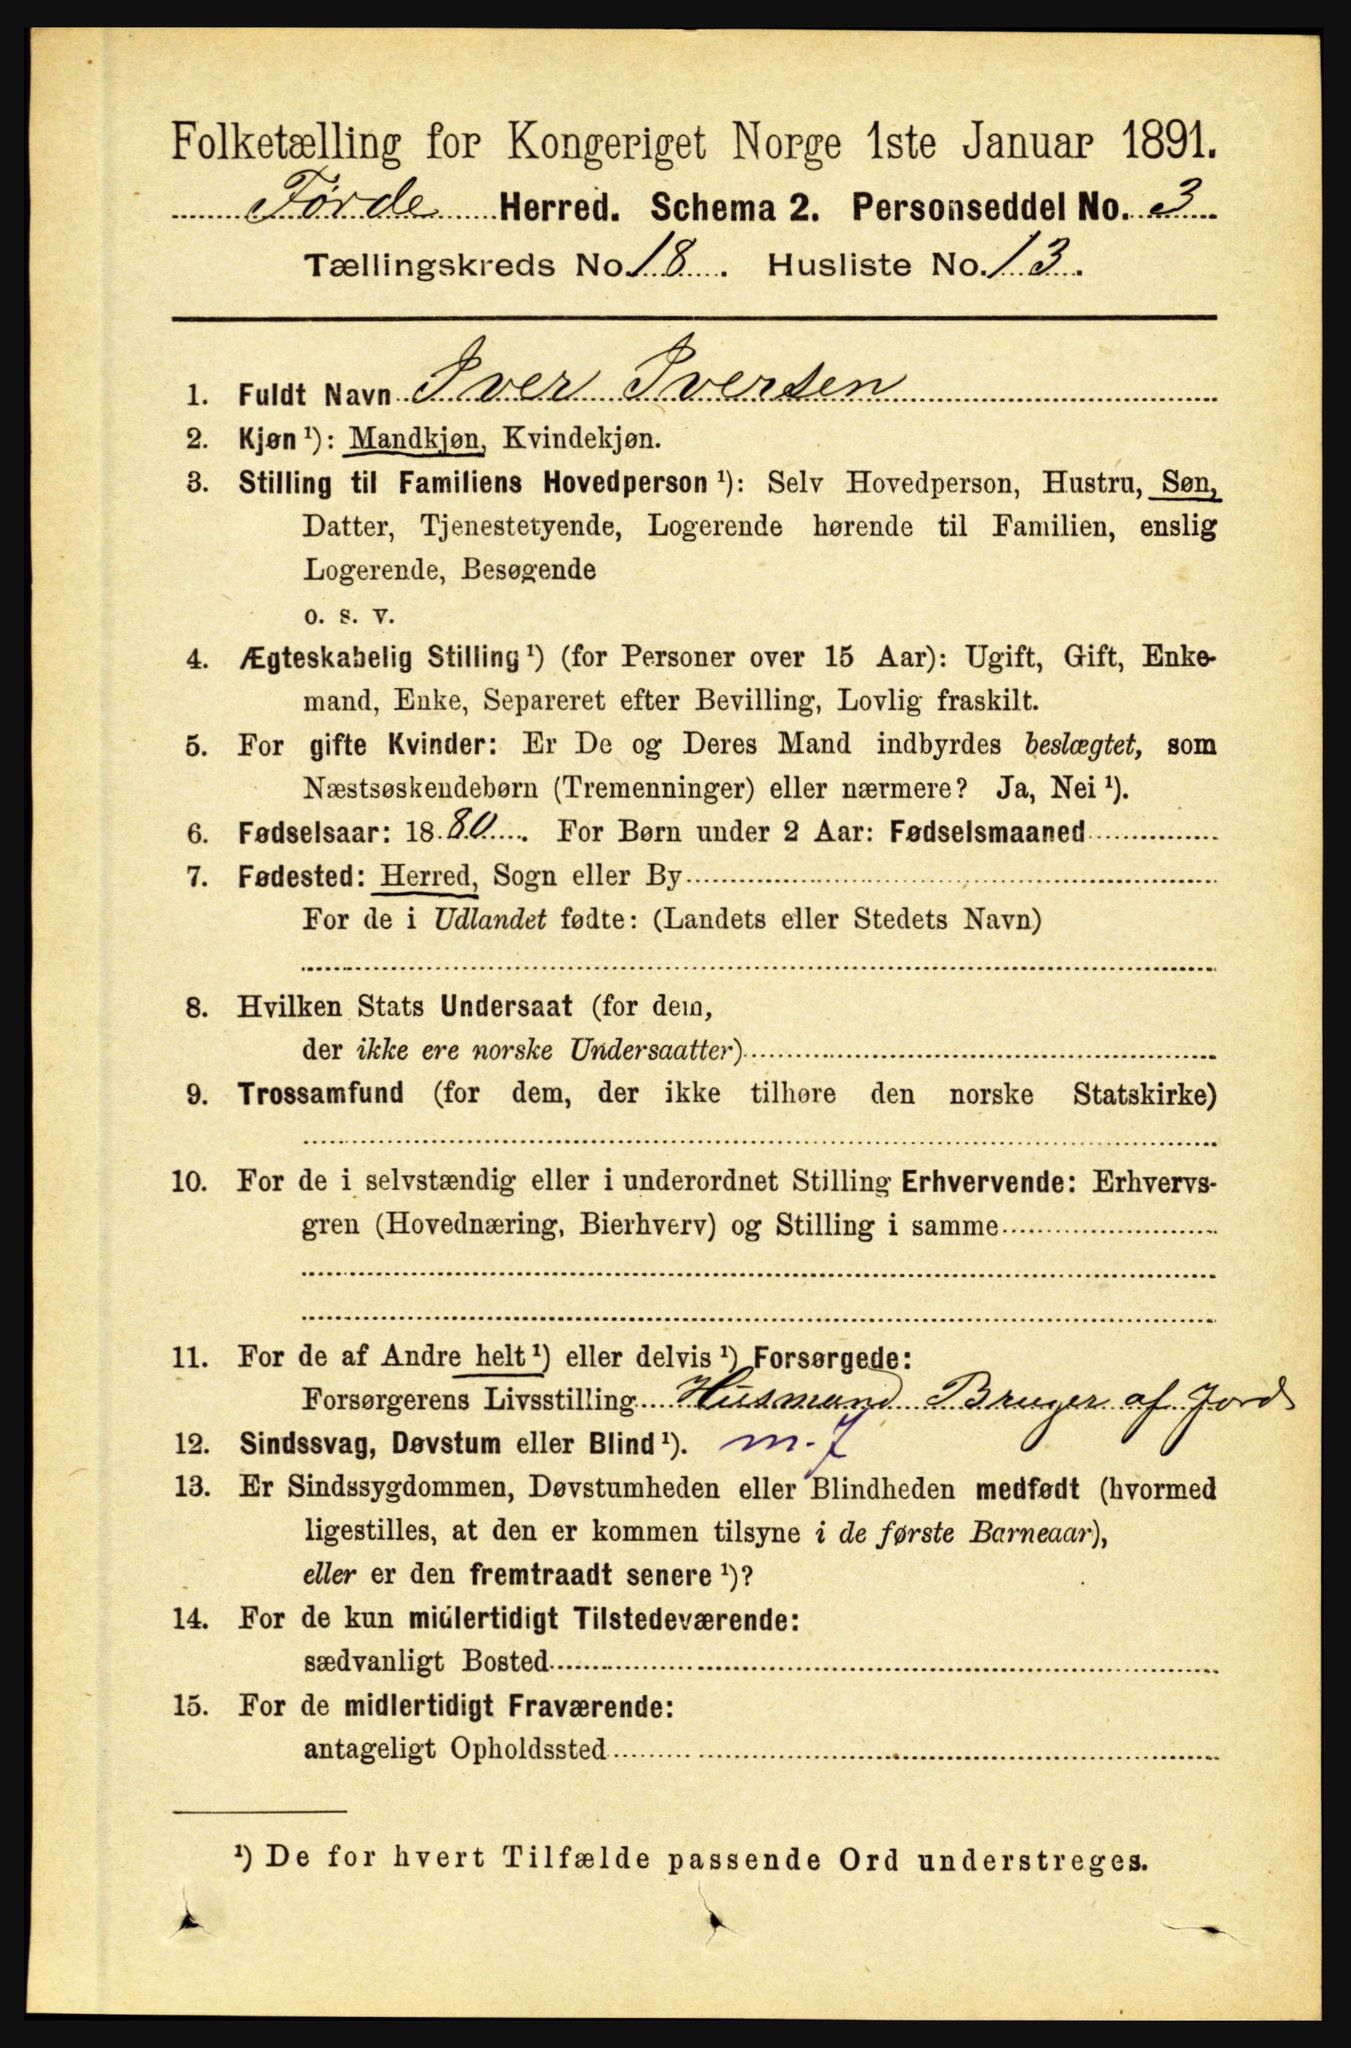 Folketælling for Kongeriget Norge 1ste Januar 1891.
Førde Herred. Schema 2. Personseddel No. 3
Tællingskreds No. 18. Husliste No. 13.
1. Fuldt Navn Iver Iversen
2. Kjøn ¹): Mandkjøn, Kvindekjøn.
3. Stilling til Familiens Hovedperson ¹): Selv Hovedperson, Hustru, Søn,
Datter, Tjenestetyende, Logerende hørende til Familien, enslig
Logerende, Besøgende
o. s. v.
4. Ægteskabelig Stilling ¹) (for Personer over 15 Aar): Ugift, Gift, Enke-
mand, Enke, Separeret efter Bevilling, Lovlig fraskilt.
5. For gifte Kvinder: Er De og Deres Mand indbyrdes beslægtet, som
Næstsøskendebørn (Tremenninger) eller nærmere? Ja, Nei ¹).
6. Fødselsaar: 1880. For Børn under 2 Aar: Fødselsmaaned
7. Fødested: Herred, Sogn eller By
For de i Udlandet fødte: (Landets eller Stedets Navn)
8. Hvilken Stats Undersaat (for dem,
der ikke ere norske Undersaatter)
9. Trossamfund (for dem, der ikke tilhøre den norske Statskirke)
10. For de i selvstændig eller i underordnet Stilling Erhvervende: Erhvervs-
gren (Hovednæring, Bierhverv) og Stilling i samme
11. For de af Andre helt ¹) eller delvis ¹) Forsørgede:
Forsørgerens Livsstilling Husmand Bruger af Jord
12. Sindssvag, Døvstum eller Blind ¹). m. 7
13. Er Sindssygdommen, Døvstumheden eller Blindheden medfødt (hvormed
ligestilles, at den er kommen tilsyne i de første Barneaar),
eller er den fremtraadt senere ¹)?
14. For de kun midlertidigt Tilstedeværende:
sædvanligt Bosted
15. For de midlertidigt Fraværende:
antageligt Opholdssted
¹) De for hvert Tilfælde passende Ord understreges.